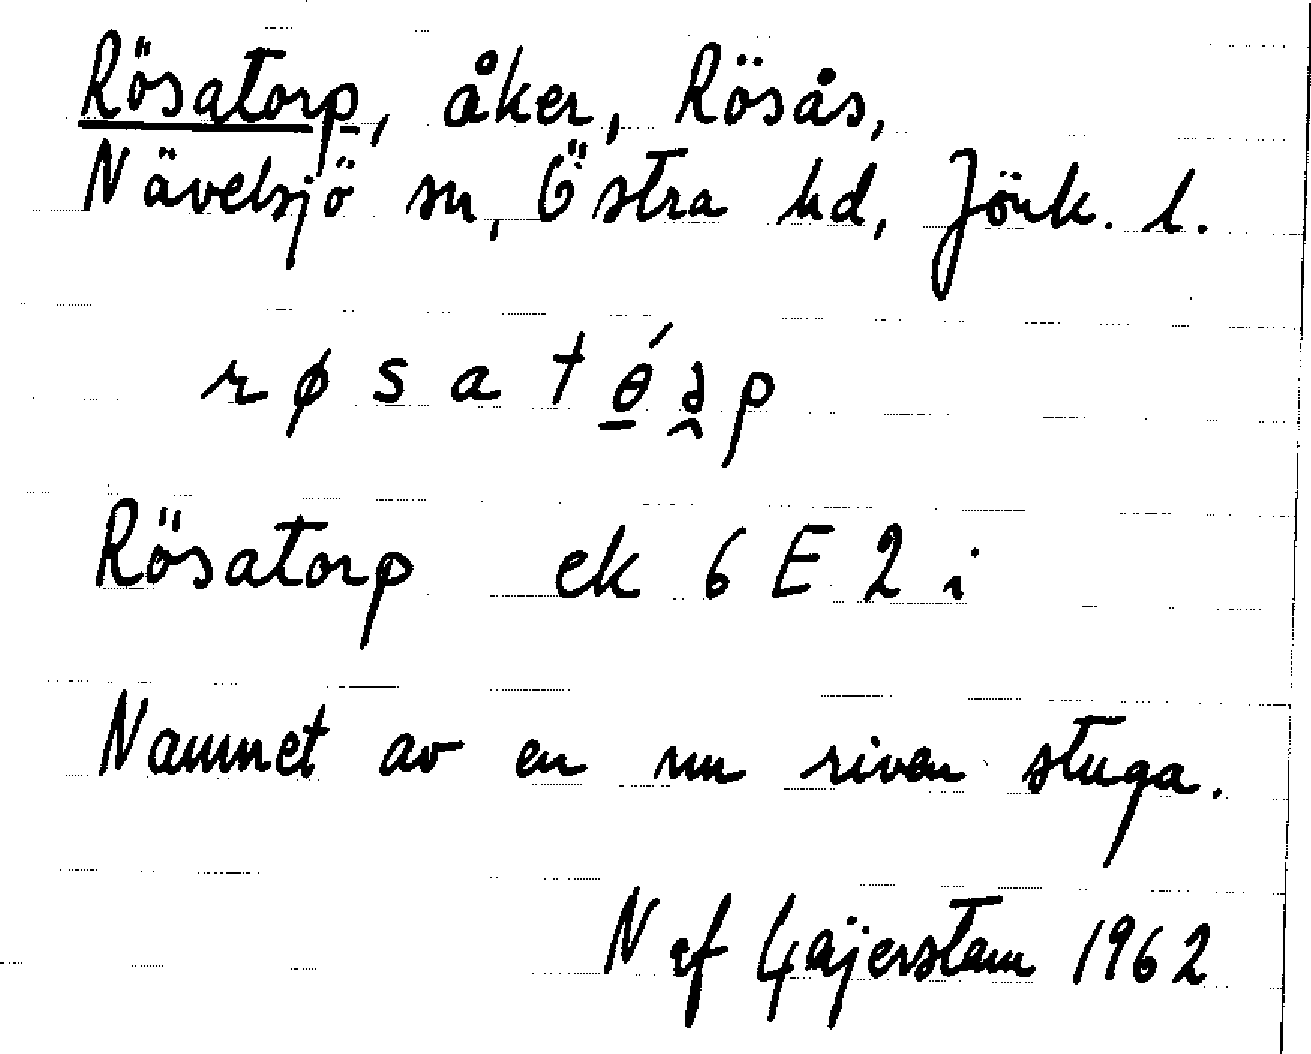 Rösatorp, åker, Rösås,
Nävelsjö sn, Östra hd, Jönk. l.
Rösatorp ek 6 E 2 i
Namnet av en nu riven stuga.
N af Gajerstam 1962